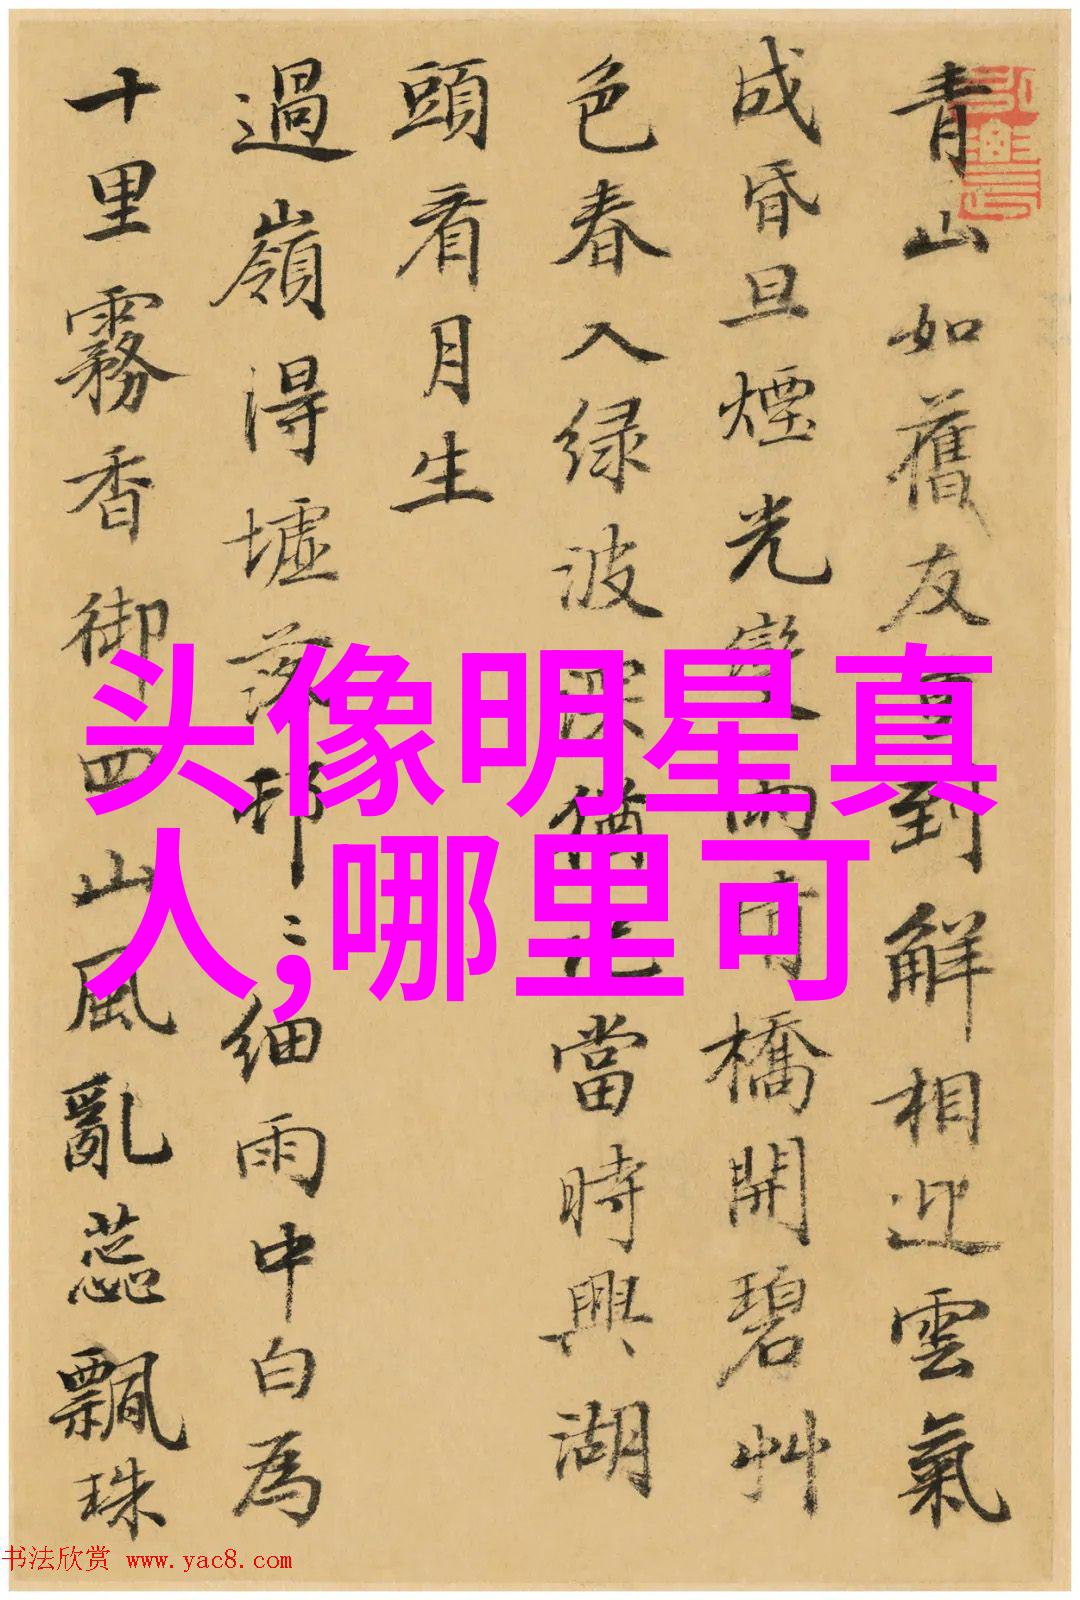 青山如舊友到解相迎雲氣
成昏旦煙光變雨晴橋開碧艸
色春入绿波深猶當時興湖
頭看月生
過嶺得墟落邨〻細雨中白為
十里霧香御四山風亂蕊飄珠
头像明星真
人;哪里可
书法欣赏 www.yac8.com